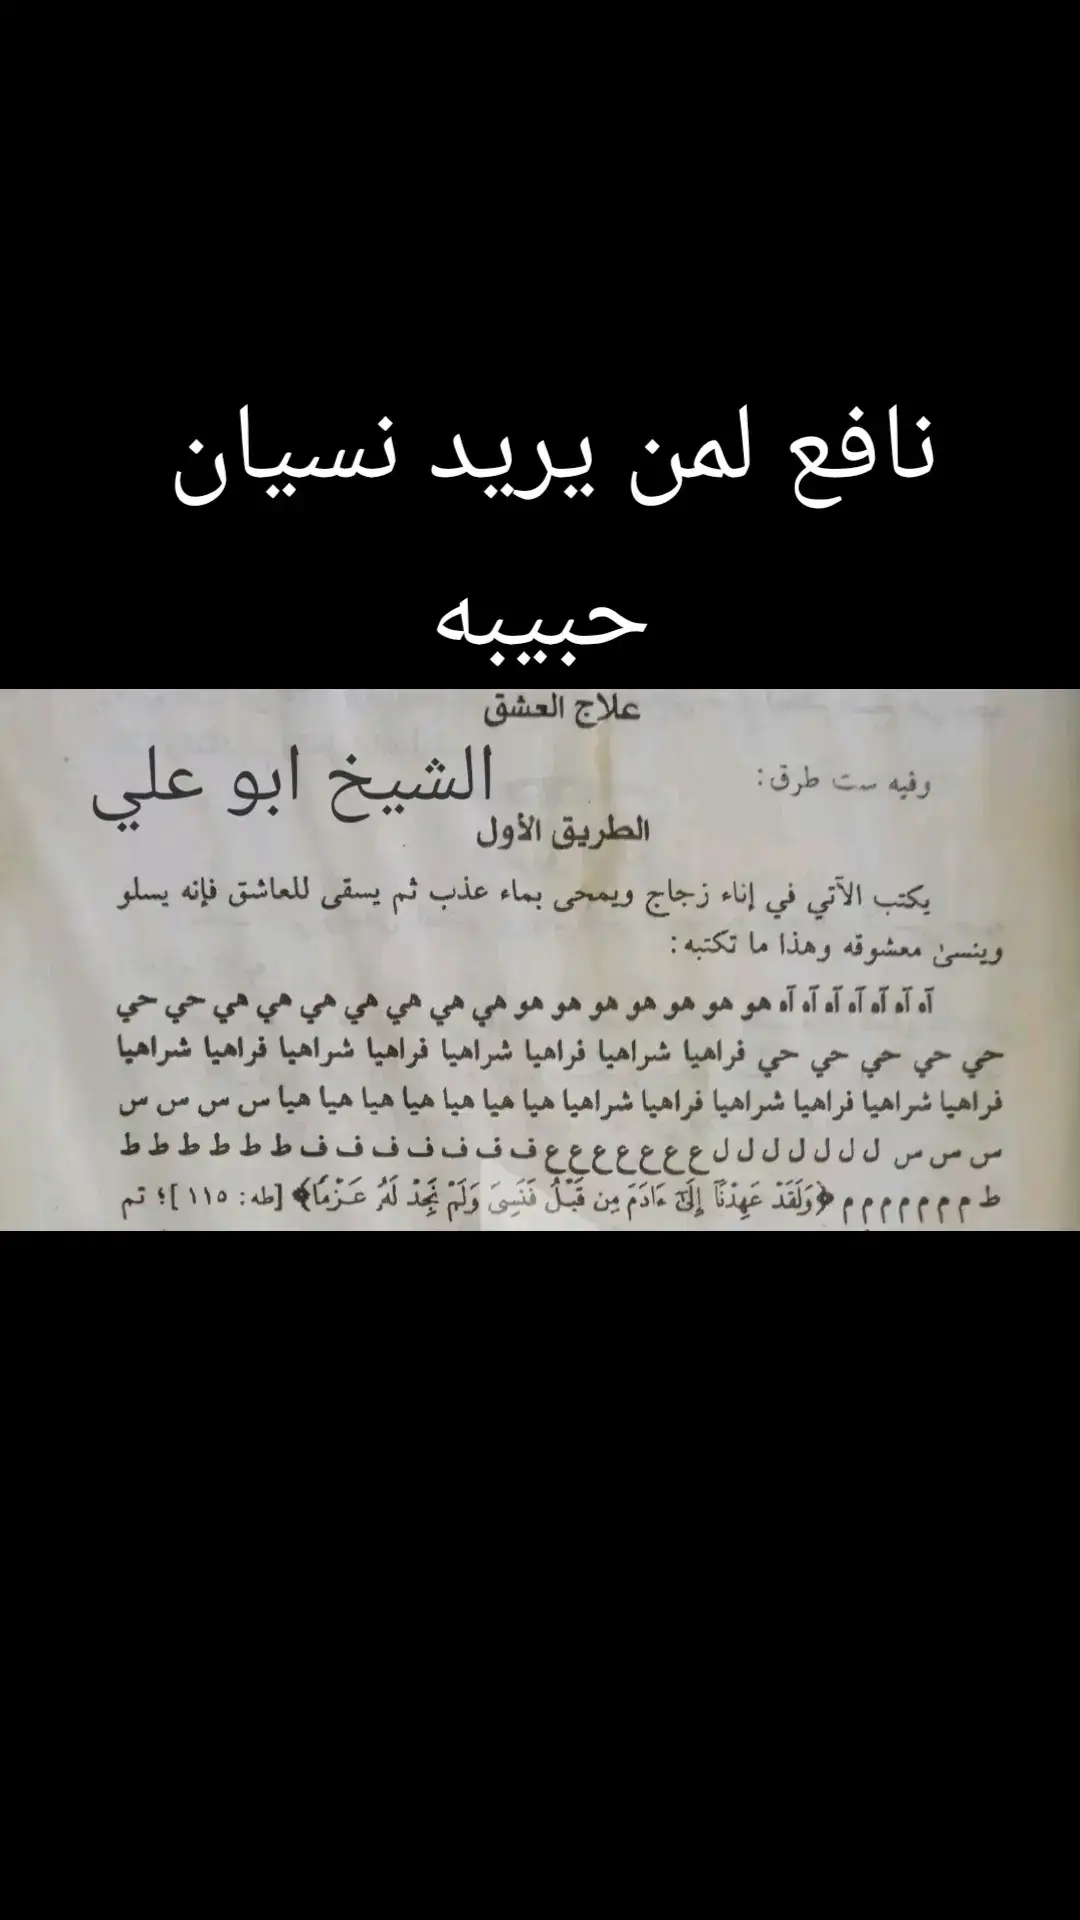 نافع لمن يريد نسيان
حبيبه
علاج العشق
الشيخ ابو علي
وفيه ست طرق:
الطريق الأول
يكتب الآتي في إناء زجاج ويمحى بماء عذب ثم يسقى للعاشق فإنه يسلو
وينسىٰ معشوقه وهذا ما تكتبه:
آه آه آه آه آه آه آه هو هو هو هو هو هو هو هي هي هي هي هي هي هي حي حي
حي حي حي حي حي فراهيا شراهيا فراهيا شراهيا فراهيا شراهيا فراهيا شراهيا
فراهيا شراهيا فراهيا شراهيا فراهيا شراهيا هيا هيا هيا هيا هيا هيا هيا س س س س
س س س ل ل ل ل ل ل ل ع ع ع ع ع ع ع ف ف ف ف ف ف ف ط ط ط ط ط ط
ط م م م م م م م ﴿وَلَقَدْ عَهِدْنَآ إِلَىٰٓ ءَادَمَ مِن قَبْلُ فَنَسِىَ وَلَمْ نَجِدْ لَهُۥ عَزْمًا﴾ [طه: ١١٥]؛ تم